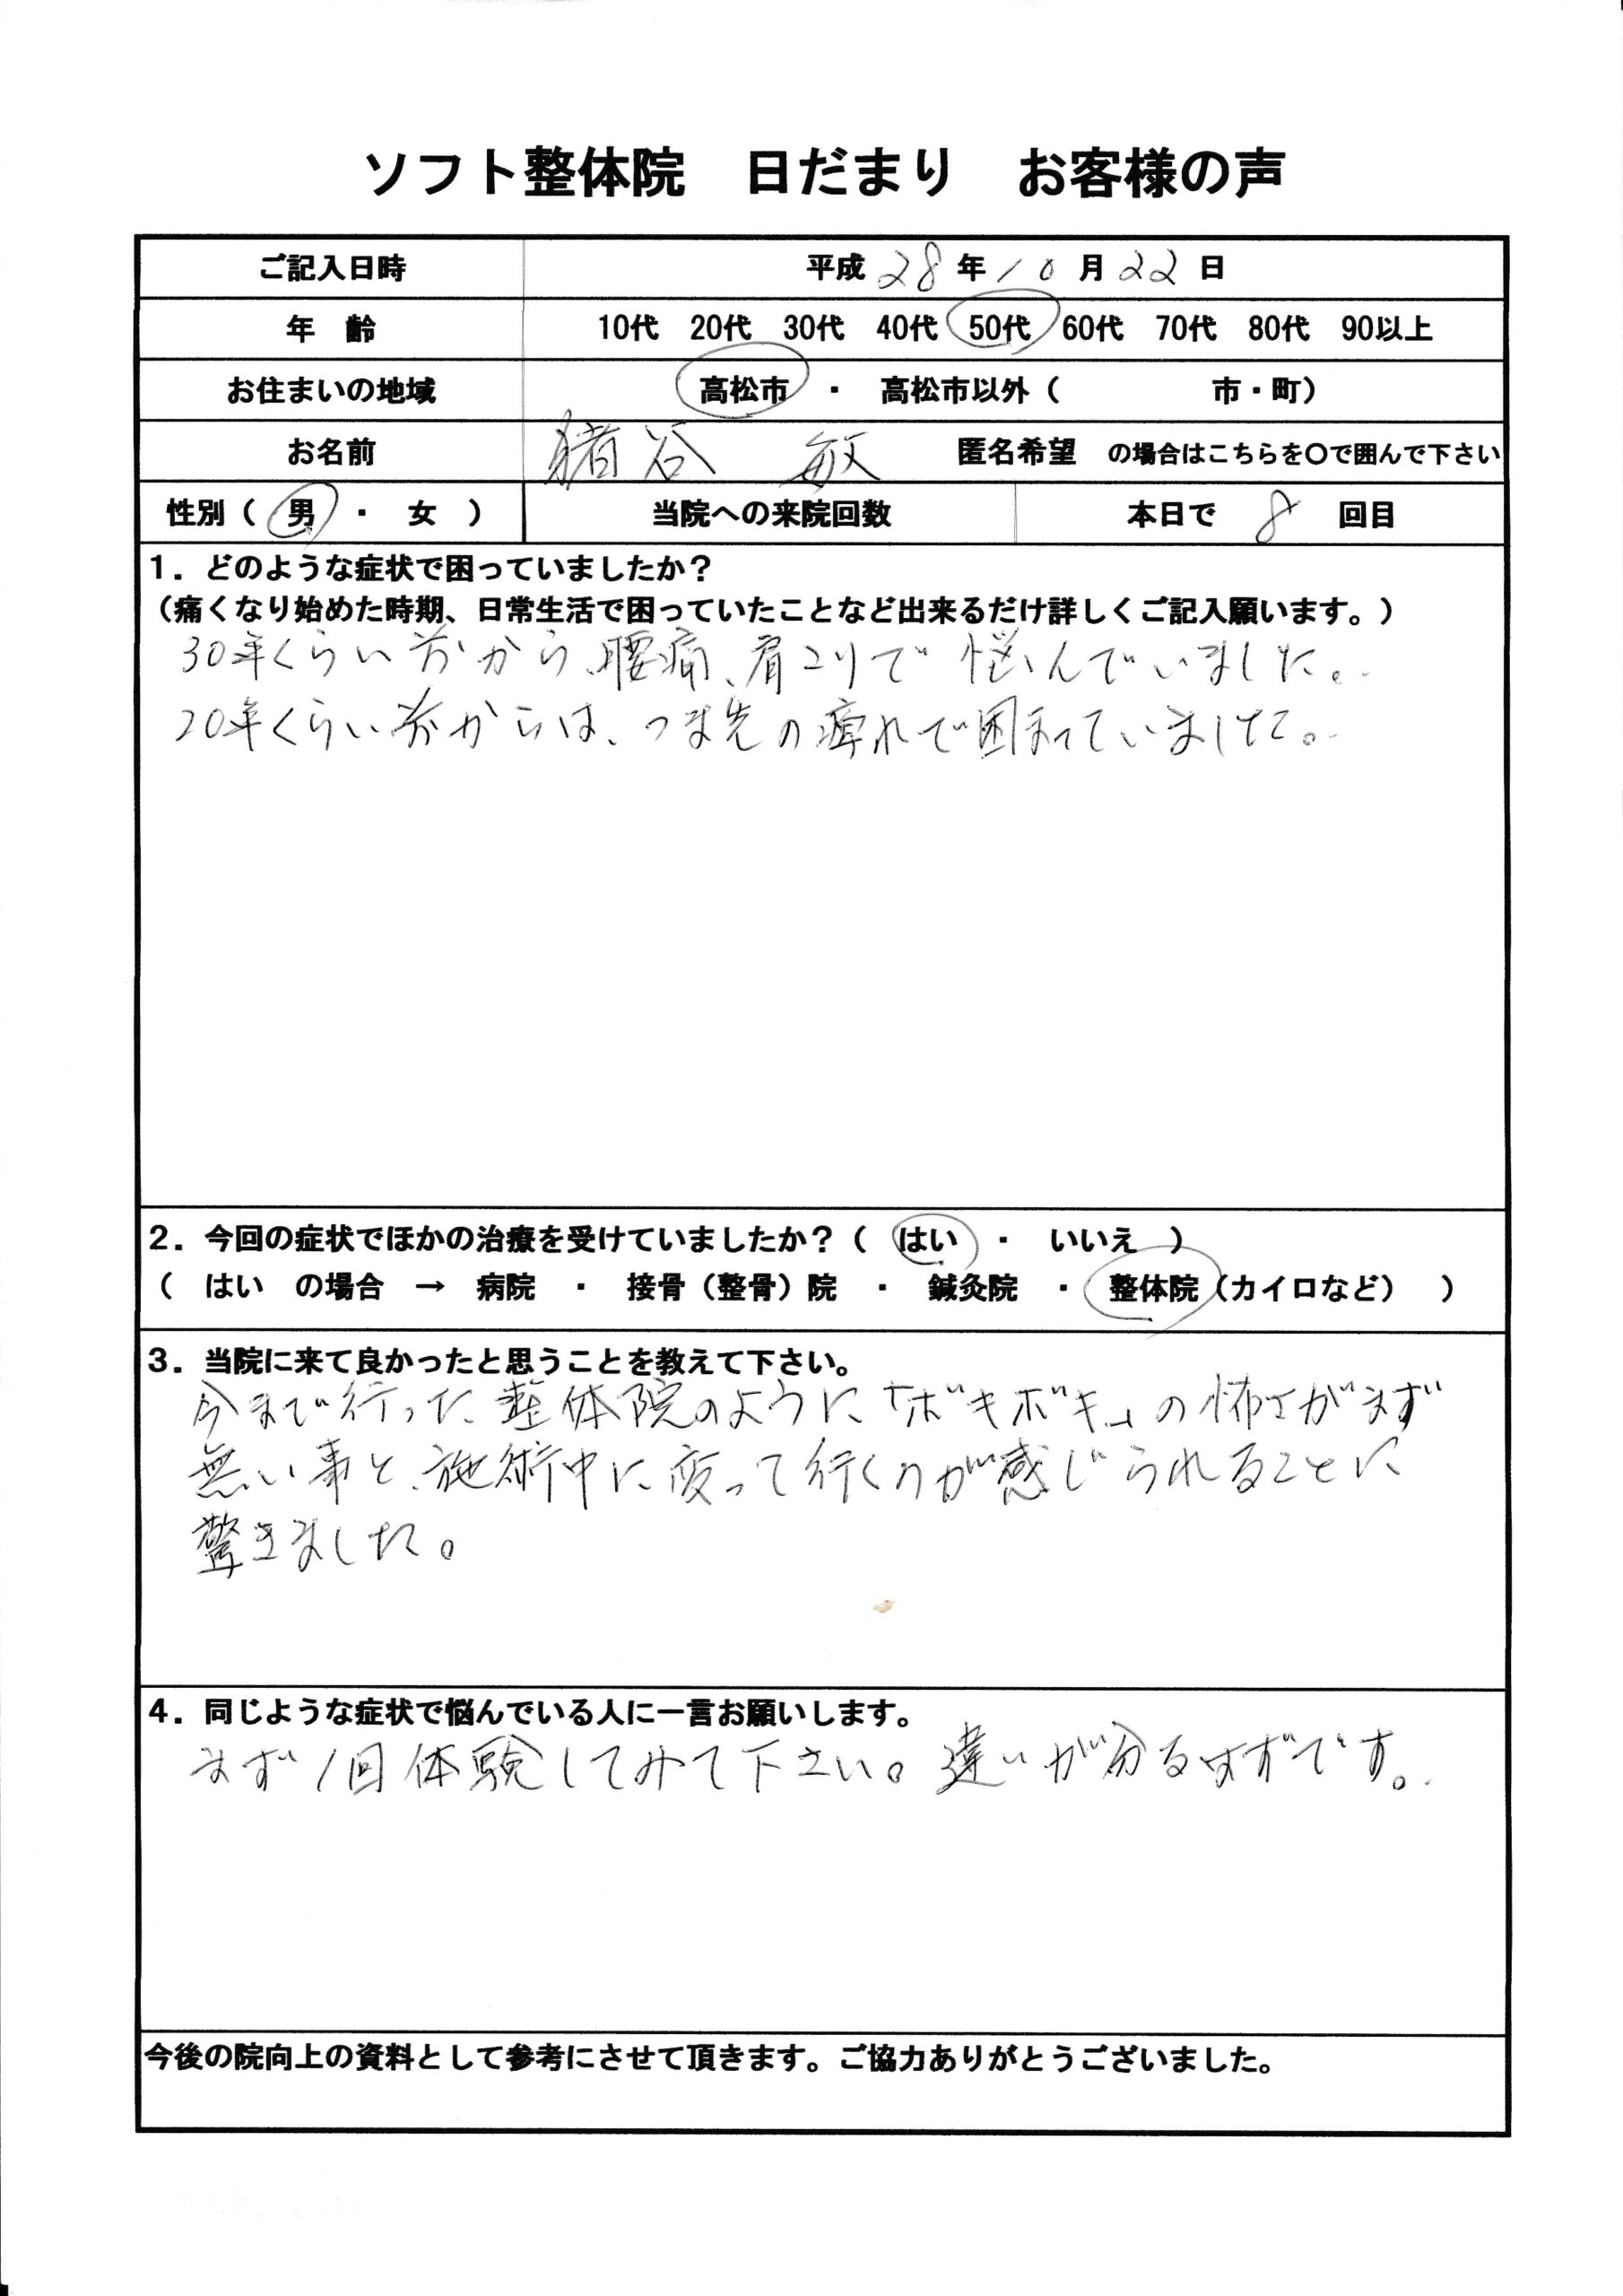 ソフト整体院　日だまり　お客様の声
ご記入日時　平成 28 年 10 月 22 日
年　齢　10代　20代　30代　40代　50代　60代　70代　80代　90以上
お住まいの地域　高松市　・　高松市以外（　　　　　市・町）
お名前　猪谷　敏　匿名希望　の場合はこちらを〇で囲んで下さい
性別（　男　・　女　）　当院への来院回数　本日で　8　回目
1．どのような症状で困っていましたか？
（痛くなり始めた時期、日常生活で困っていたことなど出来るだけ詳しくご記入願います。）
30年くらい前から、腰痛、肩コリで悩んでいました。
20年くらい前からは、つま先の痺れで困まっていました。
2．今回の症状でほかの治療を受けていましたか？（　はい　・　いいえ　）
（　はい　の場合　→　病院　・　接骨（整骨）院　・　鍼灸院　・　整体院（カイロなど）　）
3．当院に来て良かったと思うことを教えて下さい。
今まで行った整体院のように「ボキボキ」の怖さがまず
無い事と、施術中に変って行くのが感じられることに
驚きました。
4．同じような症状で悩んでいる人に一言お願いします。
まず1回体験してみて下さい。違いが分るはずです。
今後の院向上の資料として参考にさせて頂きます。ご協力ありがとうございました。